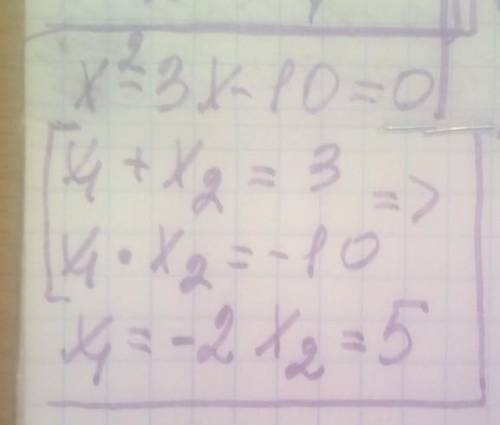 x²-3x-10=0
x₁+x₂=3
=>
x₁·x₂=-10
x₁=-2 x₂=5